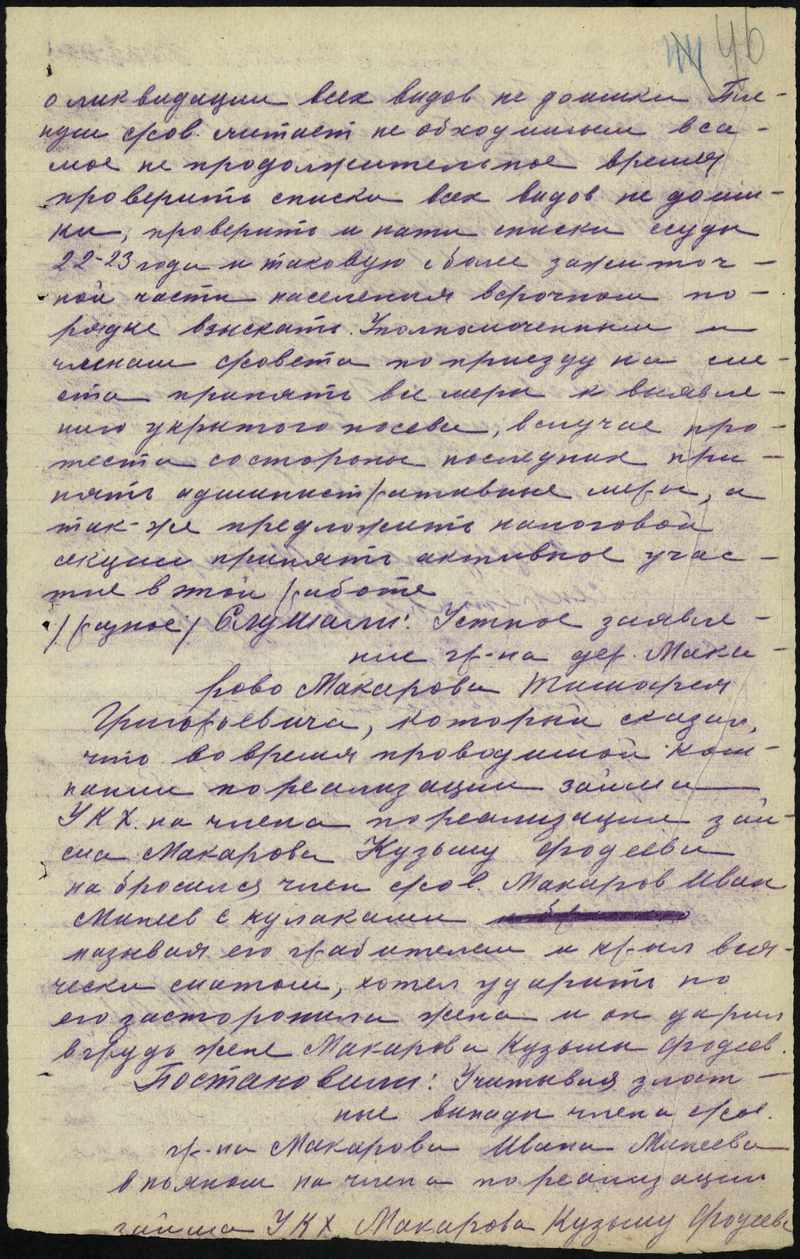 44 46
о ликвидации всех видов не доимки Пле-
нум сов. считает не обходимым в са-
мое не продолжительное время
проверить списки всех видов не доим-
ки, проверить и нати списки ссуды
22-23 года и таковую с боле зажиточ-
ной части населения всрочном по-
рядке взыскать. Уполномоченным и
членам совета по приезду на ме-
ста принять все меры к выявле-
нию укрытого посева, вслучае про-
теста состороны последних при-
нять административные меры, а
так-же предложить налоговой
секции принять активное учас-
тие в этой работе
/разное/ Слушали: Устное заявле-
ние гр-на дер. Мака-
рово Макарова
Григорьевича, который сказал,
что во время проводимой ком-
пании по реализации займа
УКХ. на члена по реализации зай-
ма Макарова Кузьму Фодеева
на бросился член сов. Макаров Иван
Минеев с кулаками
называя его грабителем и крыл вся-
чески матом, хотел ударить но
его засторонила жена и он ударил
в грудь жене Макарова Кузьмы Фодеев.
Постановили: Учитывая злост-
ные выпады члена сов.
гр-на Макарова Ивана Минеева
в пьяном на члена по реализации
займа УКХ Макарова Кузьму Фодеева